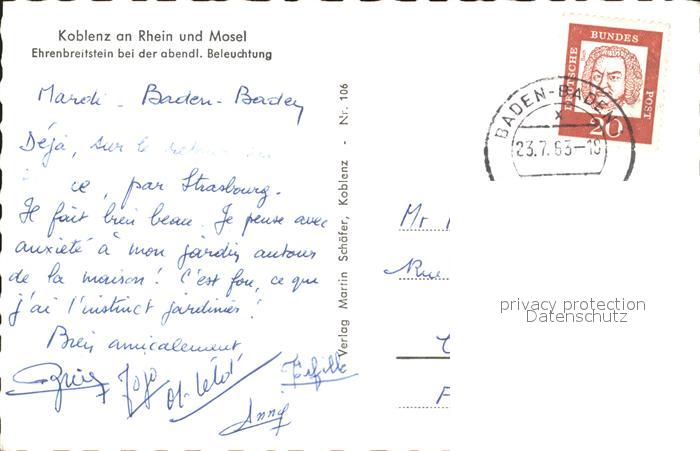 Koblenz an Rhein und Mosel
Ehrenbreitstein bei der abendl. Beleuchtung
Mardi - Baden-Baden
Déjà, sur le retour
ce, par Strasbourg.
Il fait bien beau. Je pense avec
anxiété à mon jardin autour
de la maison! C'est fou, ce que
j'ai l'instinct jardinier!
Bien amicalement
Jojo
Anny
Verlag Martin Schäfer, Koblenz - Nr. 106
DEUTSCHE BUNDES POST
Bach
20
BADEN-BADEN
x
23.7.63-18
Mr
Rue
privacy protection
Datenschutz